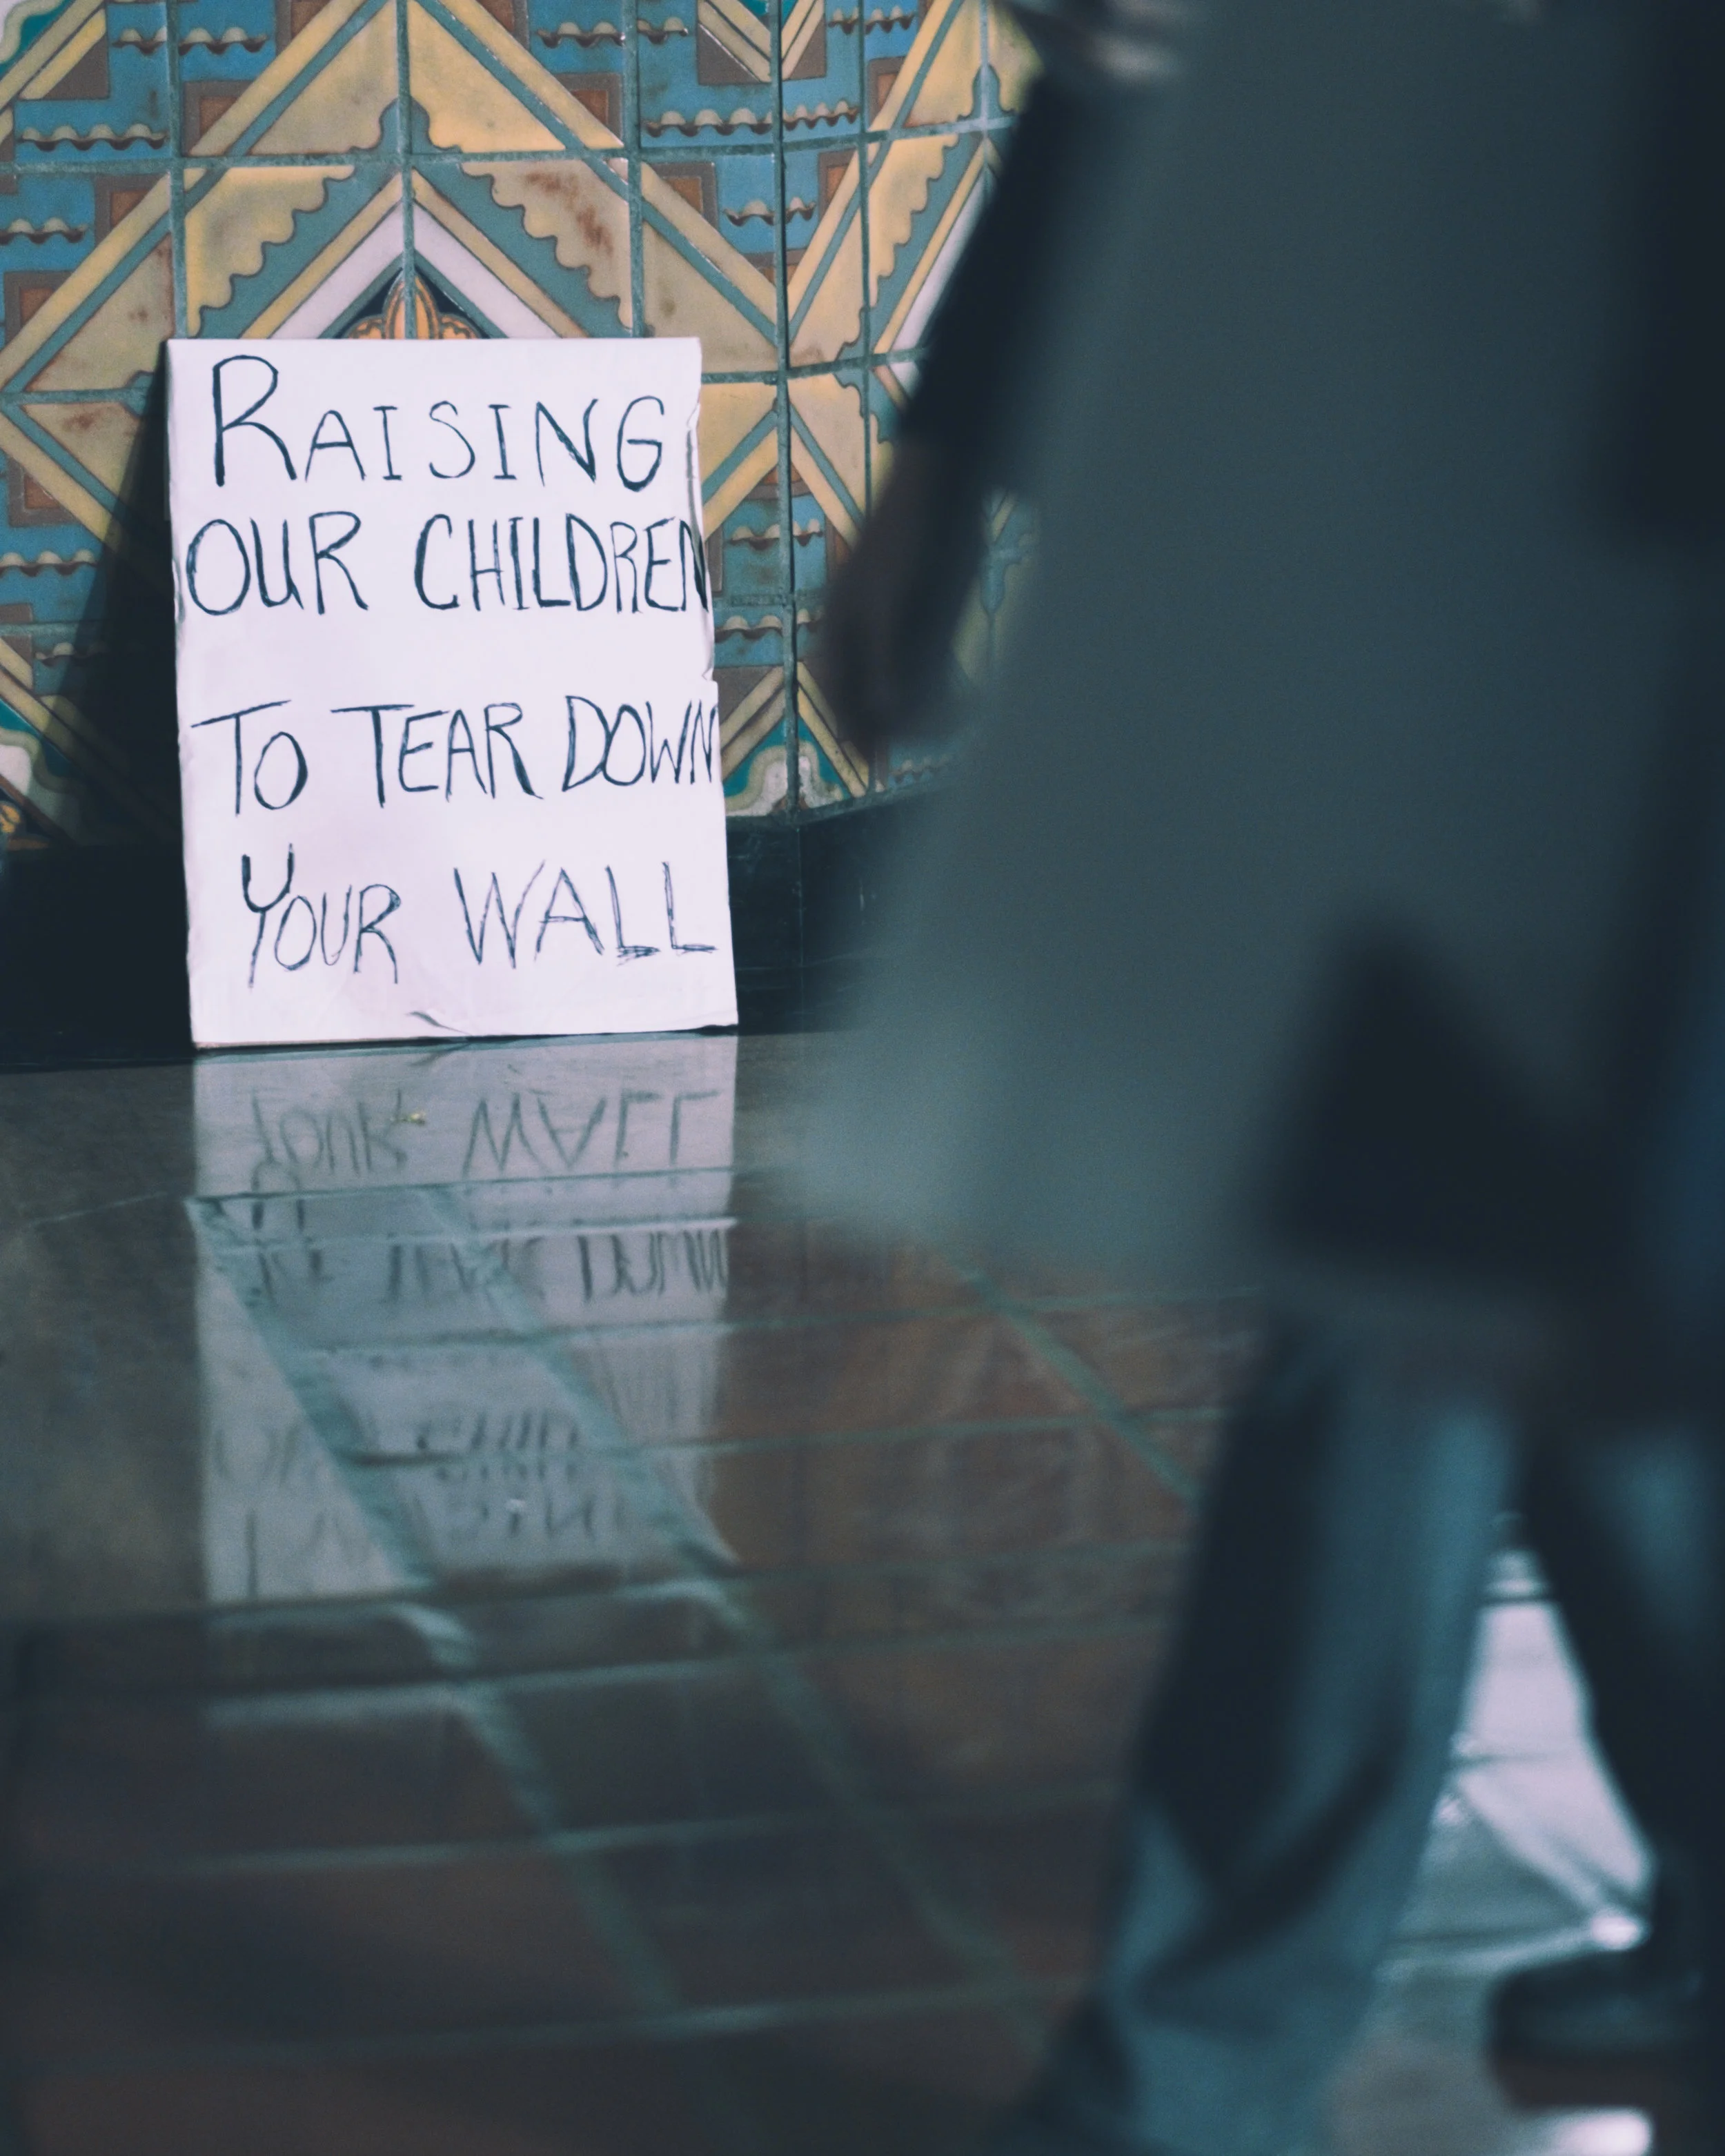 RAISING
OUR CHILDREN
TO TEAR DOWN
YOUR WALL